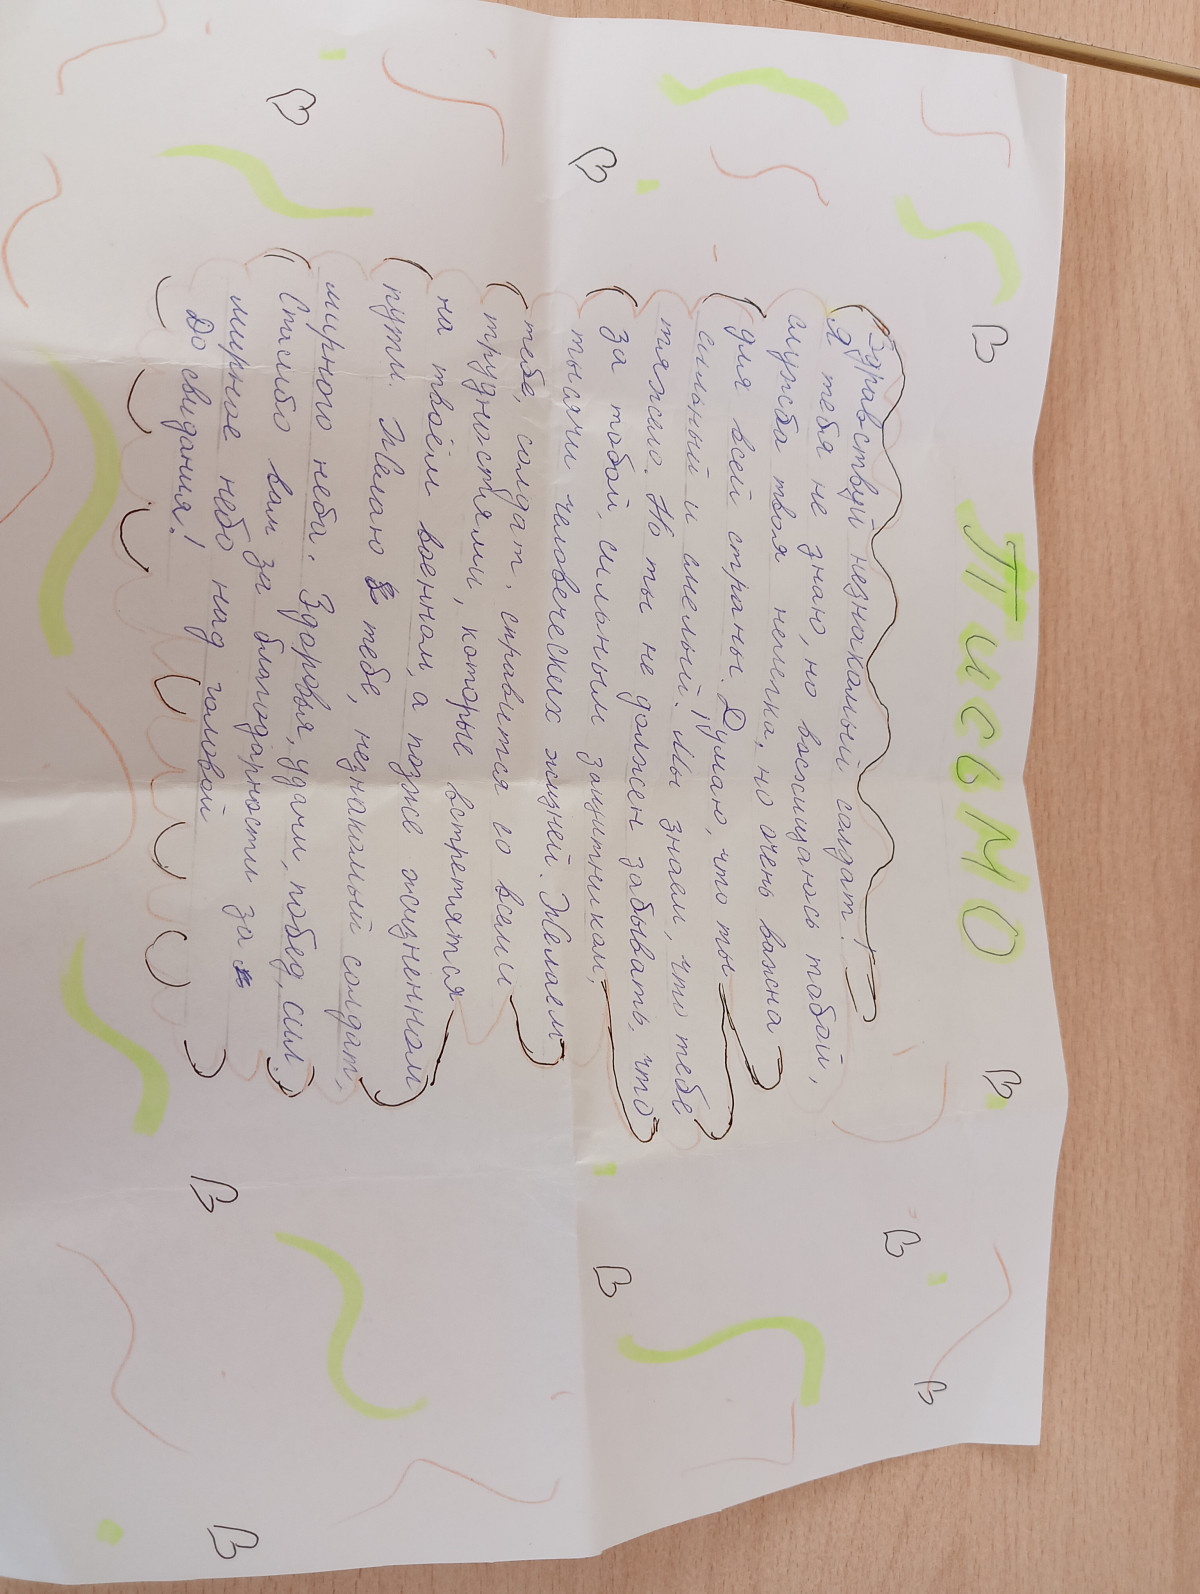 Письмо
Здравствуй незнакомый солдат!
Я тебя не знаю, но восхищаюсь тобой,
служба твоя нелегка, но очень важна
для всей страны. Думаю, что ты
сильный и смелый. Мы знаем, что тебе
тяжело. Но ты не должен забывать, что
за тобой, сильным защитником,
тысячи человеческих жизней. Желаем
тебе, солдат, справится со всеми
трудностями, которые встретятся
на твоём военном, а позже жизненном
пути. Желаю тебе, незнакомый солдат,
мирного неба. Здоровья, удачи, побед, сил.
Спасибо вам за благодарности за
мирное небо над головой
До свидания!